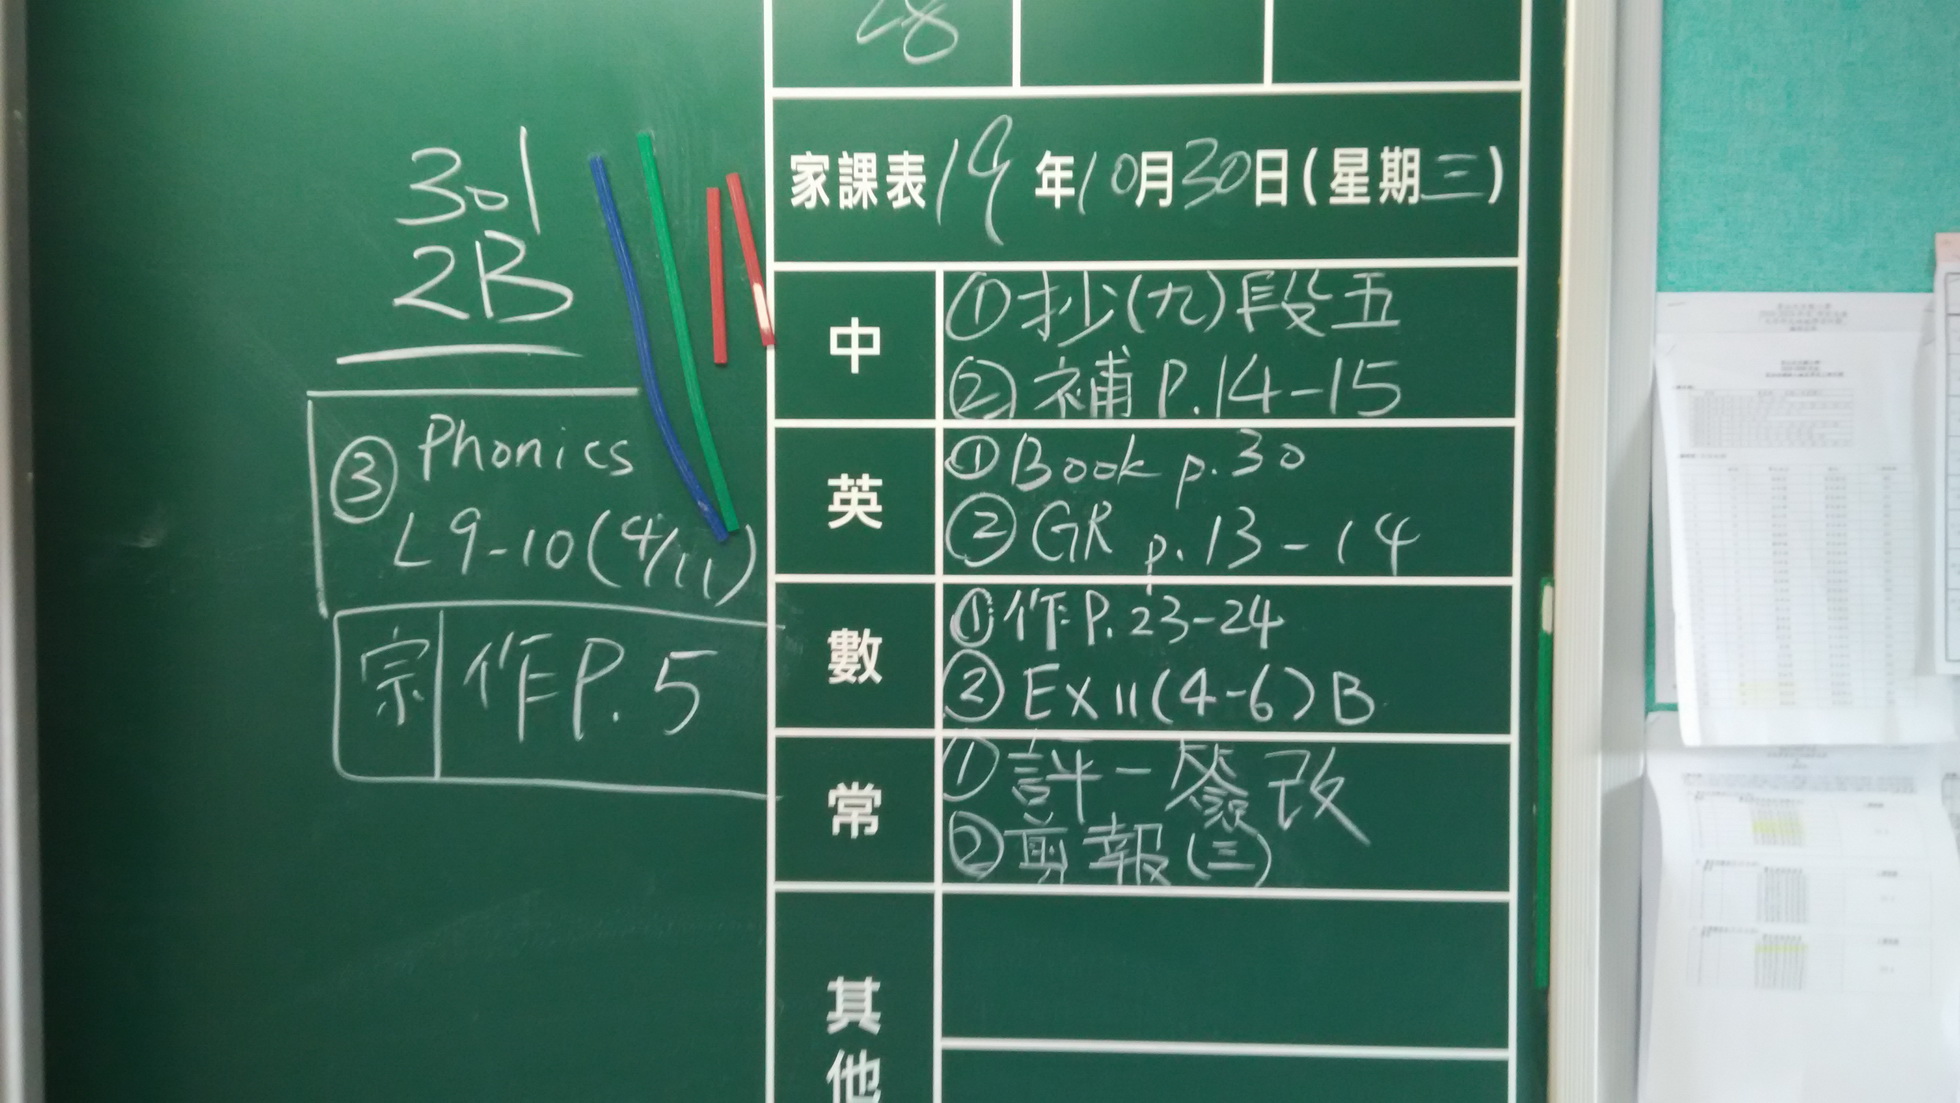 28
家課表19年10月30日(星期三)
301
2B
中
①抄(九)段五
②補P.14-15
英
①Book p.30
②GR p.13-14
③Phonics
L9-10(4/11)
數
①作P.23-24
②Ex11(4-6)B
宗 作P.5
常
①評一簽改
②剪報(三)
其他